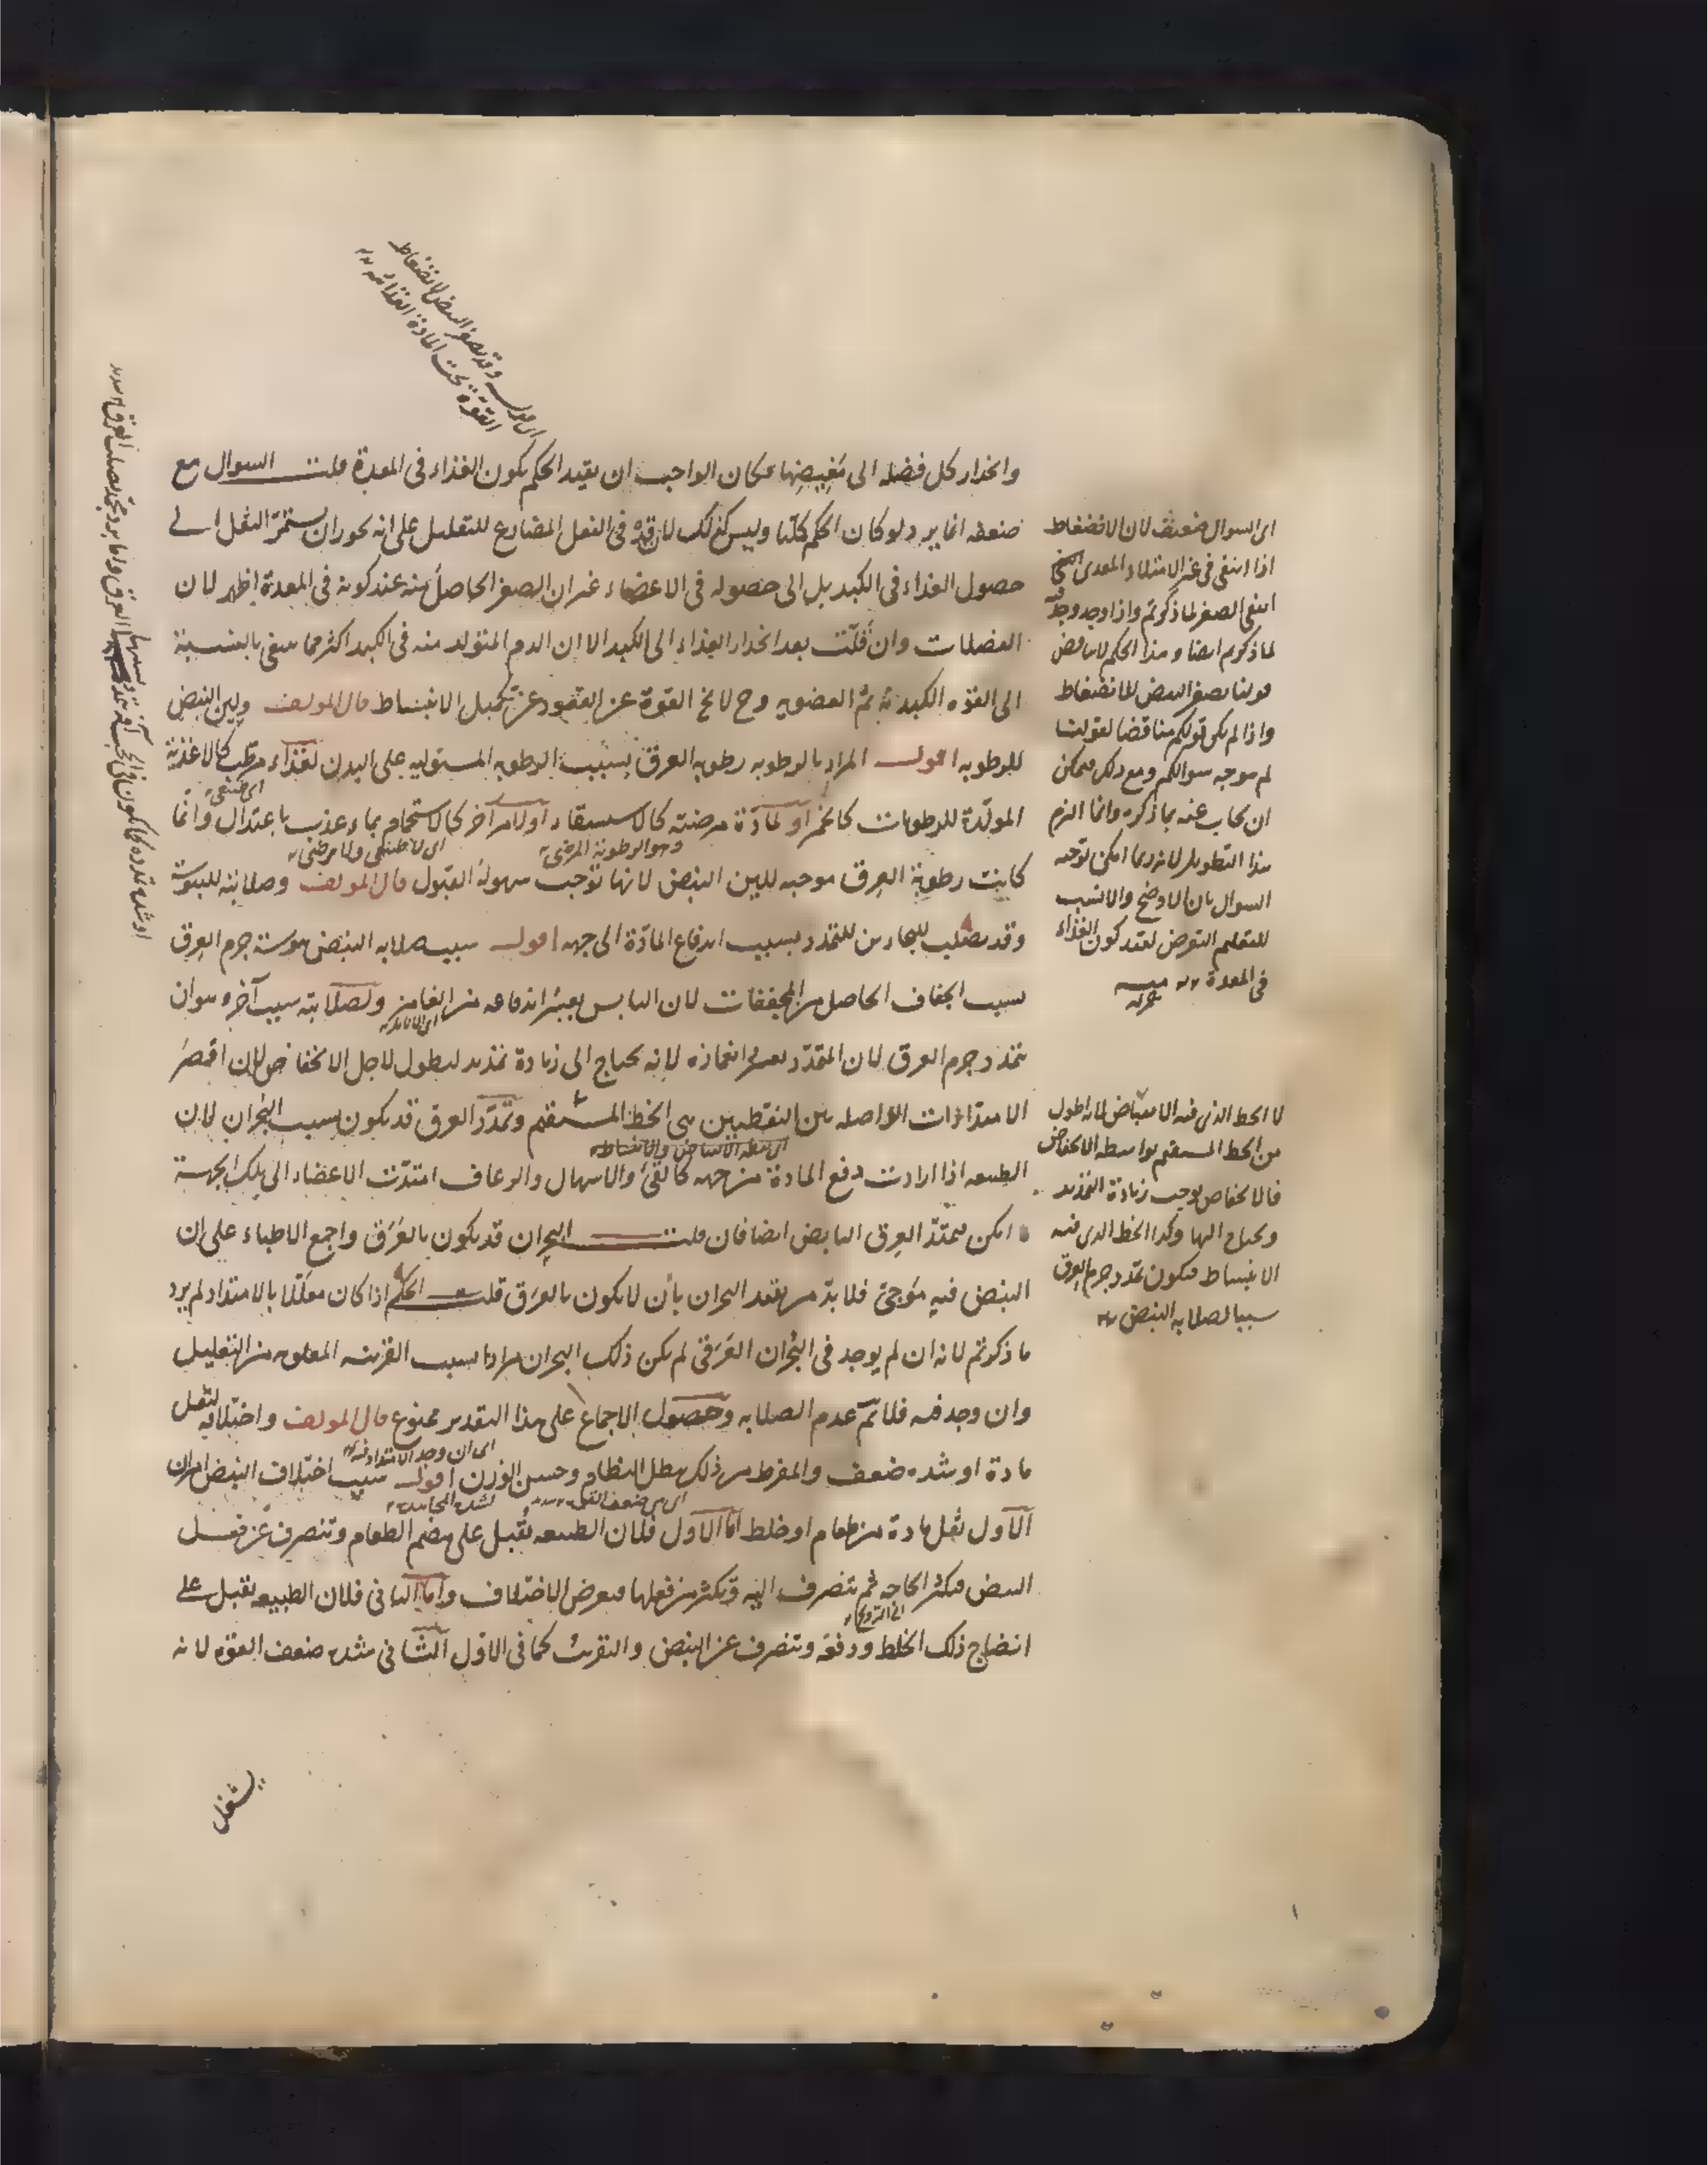 وانحدار كل فضله الى مَغِيضِها فكان الواجب ان يقيد الحكم بكون الغذاء فى المعدة قلت السوال مع
ضعفه انما يرد لو كان الحكم كليا وليس كذلك لان قد فى الفعل المضارع للتقليل على انه يجوز ان يستمرّ الثقل الى
حصول الغذاء فى الكبد بل الى حصوله فى الاعضاء غير ان الصغر الحاصل منه عند كونه فى المعدة اظهر لان
الفضلات وان قَلَّت بعد انحدار الغذاء الى الكبد الا ان الدم المتولد منه فى الكبد اكثر مما يبقى بالنسبة
الى القوه الكبديه ثم العضويه وح لا تخ القوة عن القصور عن تكميل الانبساط قال المولف ولين النبض
للرطوبه اقول المراد بالرطوبه رطوبه العرق بسبب الرطوبه المستوليه على البدن لغذاء مرطب كالاغذية
اى طبيعى
المولّدة للرطوبات كالخمر او لمادّة مرضيّه كالاستسقاء او لامر آخر كالاستحمام بماء عذب باعتدال وانّما
وهو الرطوبة المرضى
اى لا طبيعى ولا مرضى
كانت رطوبة العِرق موجبه للين النبض لانها توجب سهولة القبول قال المولف وصلابته لليبوسة
وقد يصلب للبحارين للتمدد بسبب اندفاع المادّة الى جهه اقول سبب صلابه النبض يبوسة جرم العِرق
بسبب الجفاف الحاصل من المجففات لان اليابس يعسر اندفاعه من الغامز ولصلابته سبب آخر وهو ان
يتمدد جرم العرق لان المتمدّد يعسر انغمازه لانه يحتاج الى زيادة تمديد ليطول لاجل الانخفاض لان اقصَرَ
الامتدادات الواصله بين النقطتين هى الخط المستقيم وتمدّد العرق قد يكون بسبب البُحران لان
الطبيعه اذا ارادت دفع المادة من جهه كالقئ والاسهال والرعاف امتدّت الاعضاء الى تلك الجهة
امكن فيمتدّ العِرق النابض ايضا فان قلت البحران قد يكون بالعَرَق واجمع الاطباء على ان
النبض فيه مَوجىّ فلا بدّ من تقيد البحران بأن لا يكون بالعرَق قلت الحكم اذا كان معلّلا بالامتداد لم يرد
ما ذكرتم لانه ان لم يوجد فى البُحران العَرَقى لم يكن ذلك البحران مرادا بسبب القرينه المعلومه من التعليل
وان وجد فيه فلا ثمّ عدم الصلابه وحصول الاجماع على هذا التقدير ممنوع قال المولف واختلافه لثقل
اى ان وجد الامتداد فيه
مادة او شده ضعف والمفرط من ذلك يبطل النظام وحسن الوزن اقول سبب اختلاف النبض امران
الاول ثقل مادة من طعام او خلط امّا الاول فلان الطبيعه تُقبل على هضم الطعام وتنصرف عن فعل
النبض فيكثر الحاجه ثم تنصرف اليه ويكثر من فعلها فيعرض الاختلاف وامّا الثانى فلان الطبيعه تقبل على
انضاج ذلك الخلط ودفعه وتنصرف عن النبض والتقريب كما فى الاوّل الثانى شده ضعف القوه لانه
يشغل
اى السوال ضعيف لان الانضغاط
اذا انتفى فى غير الامتلاء المعدى
انتفى الصغر لما ذكرتم واذا وجد وجد
لما ذكرتم ايضا وهذا الحكم لا يناقض
قولنا يصغر النبض للانضغاط
واذا لم يكن قولكم مناقضا لقولنا
لم يتوجه سوالكم ومع ذلك فيمكن
ان يجاب عنه بما ذكره وانما التزم
هذا التطويل لانه ربما امكن توجيه
السوال بان الاوضح والانسب
للتعليم التعرض لقيد كون الغذاء
فى المعدة
لا الخط الذى فيه الانقباض لانه اطول
من الخط المستقيم بواسطه الانخفاض
فالانخفاض يوجب زيادة التمديد
ويحتاج اليها وكذا الخط الذى فيه
الانبساط فيكون تمدد جرم العرق
سببا لصلابه النبض
وقد يصغر النبض لانضغاط
القوة تحت المادة الغذائيه